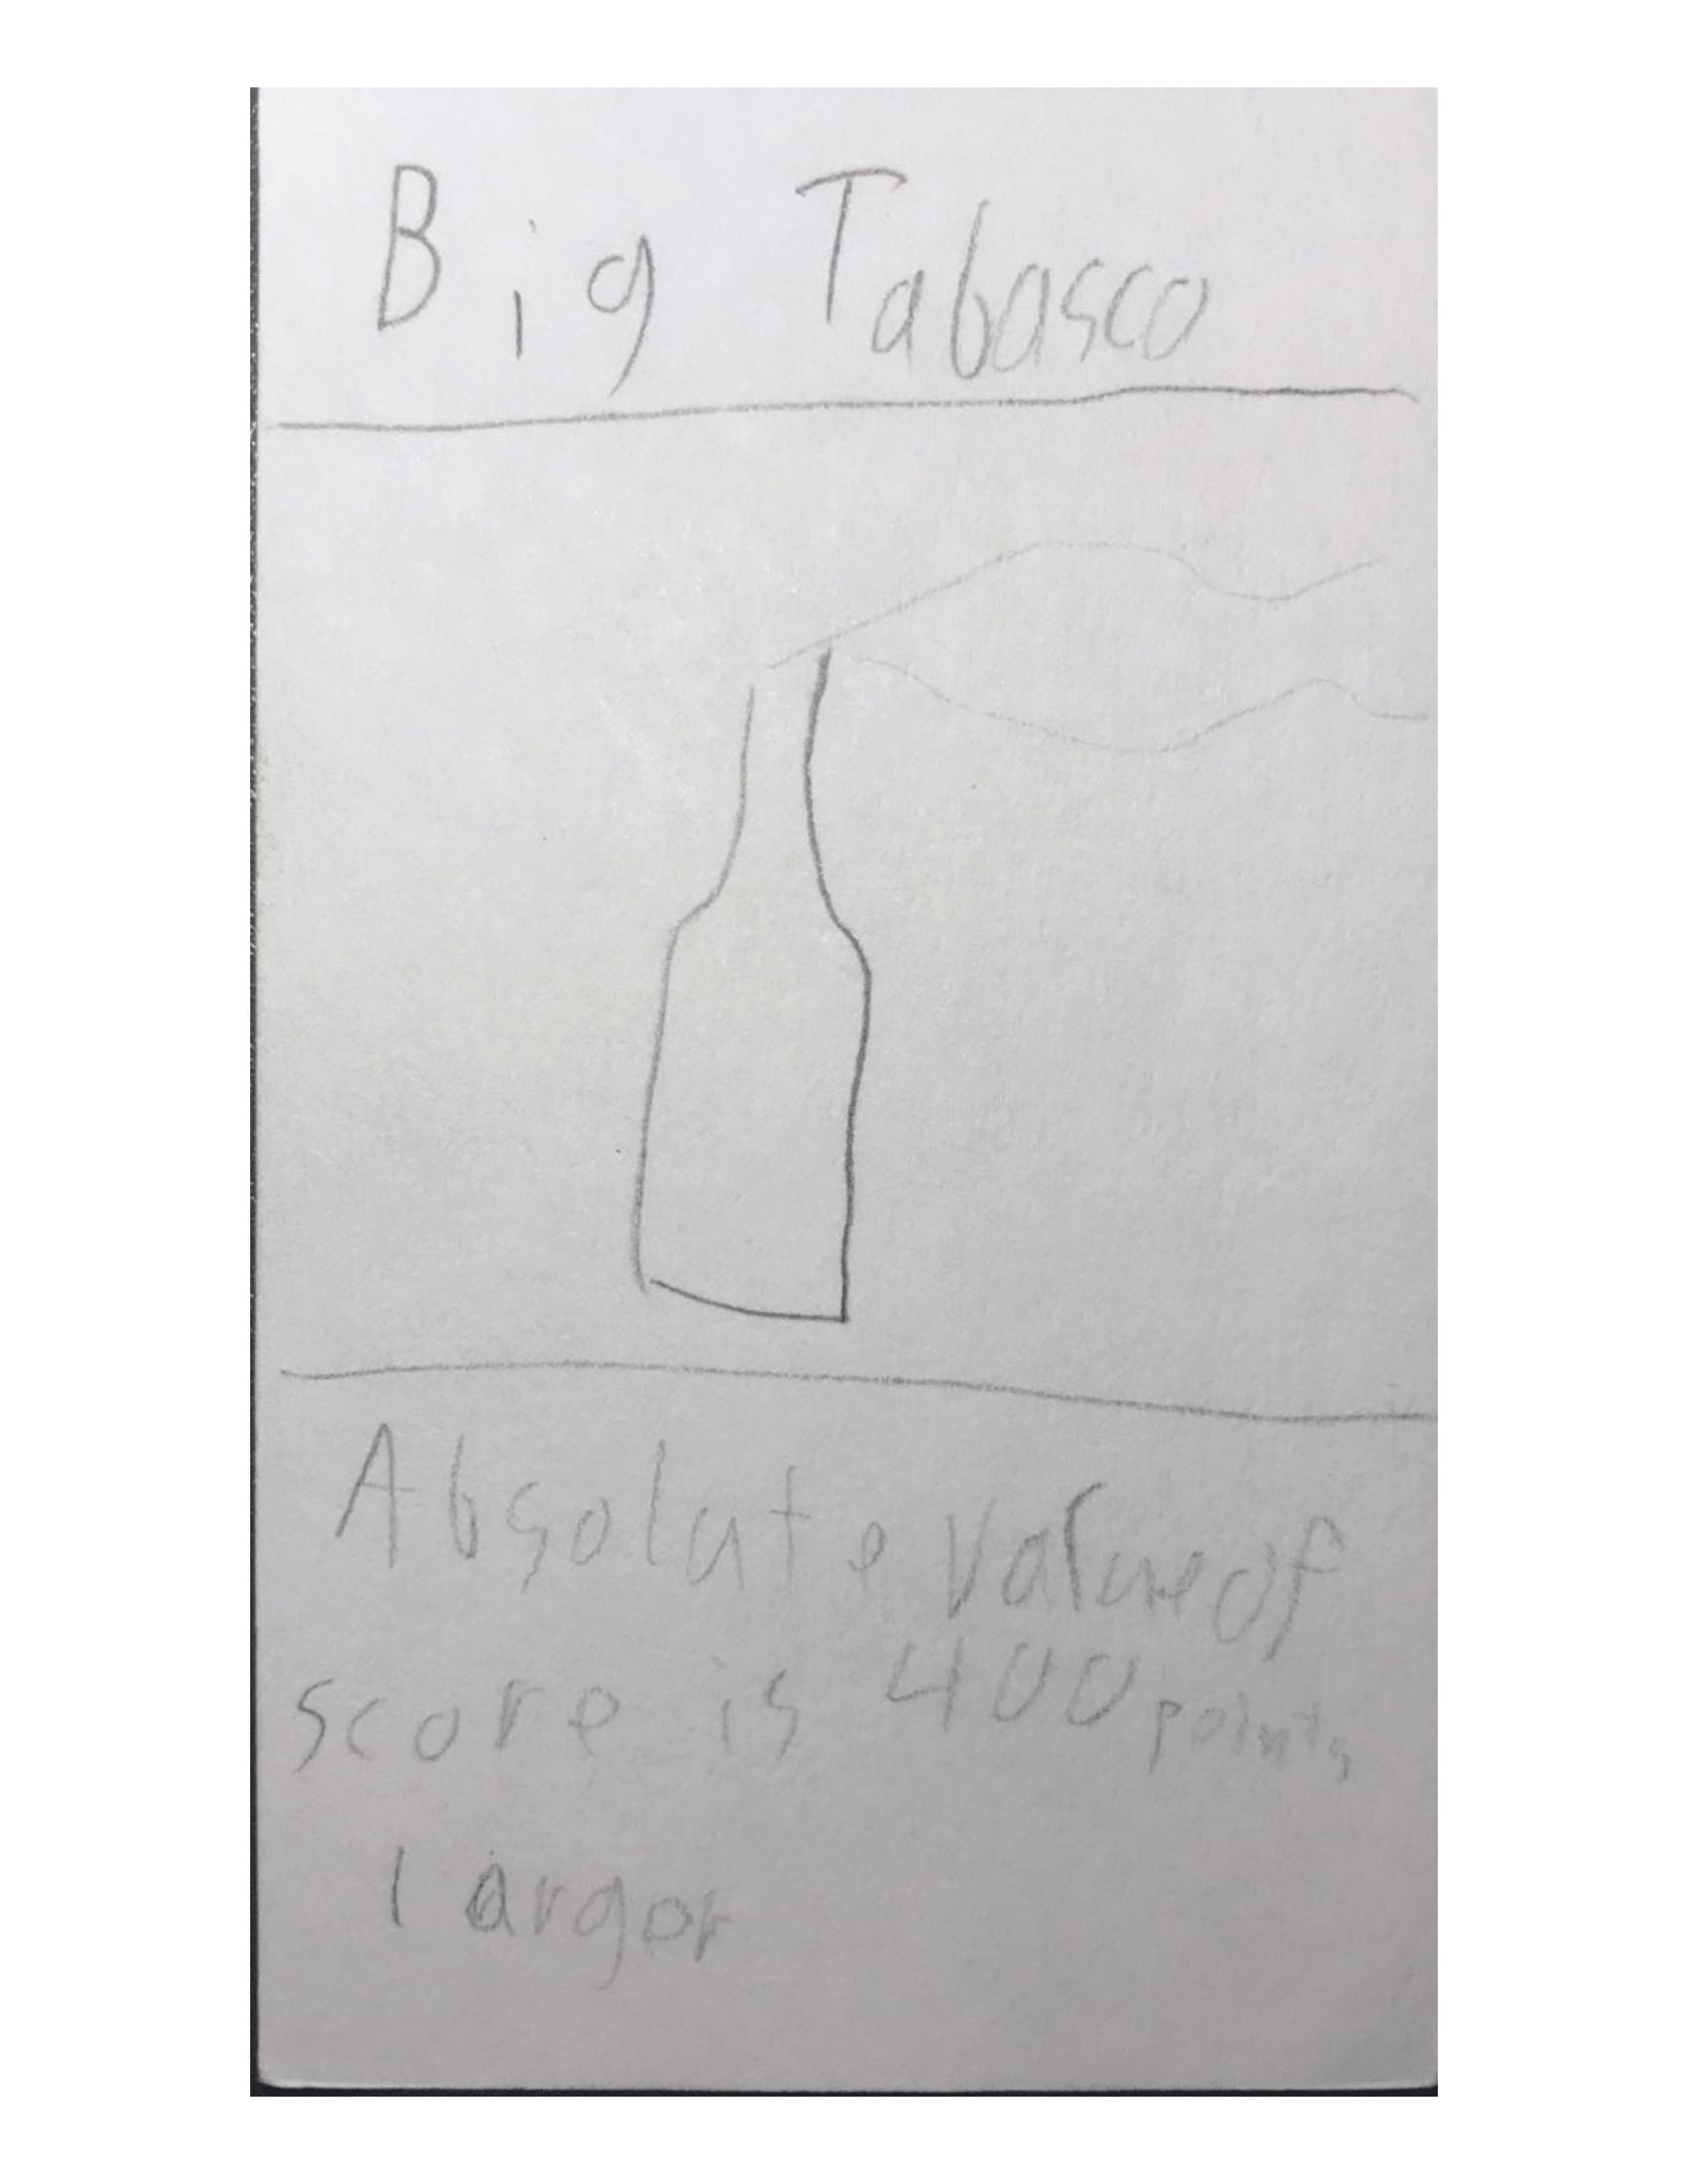 Big Tabasco
Absolute value of
score is 400 points
larger